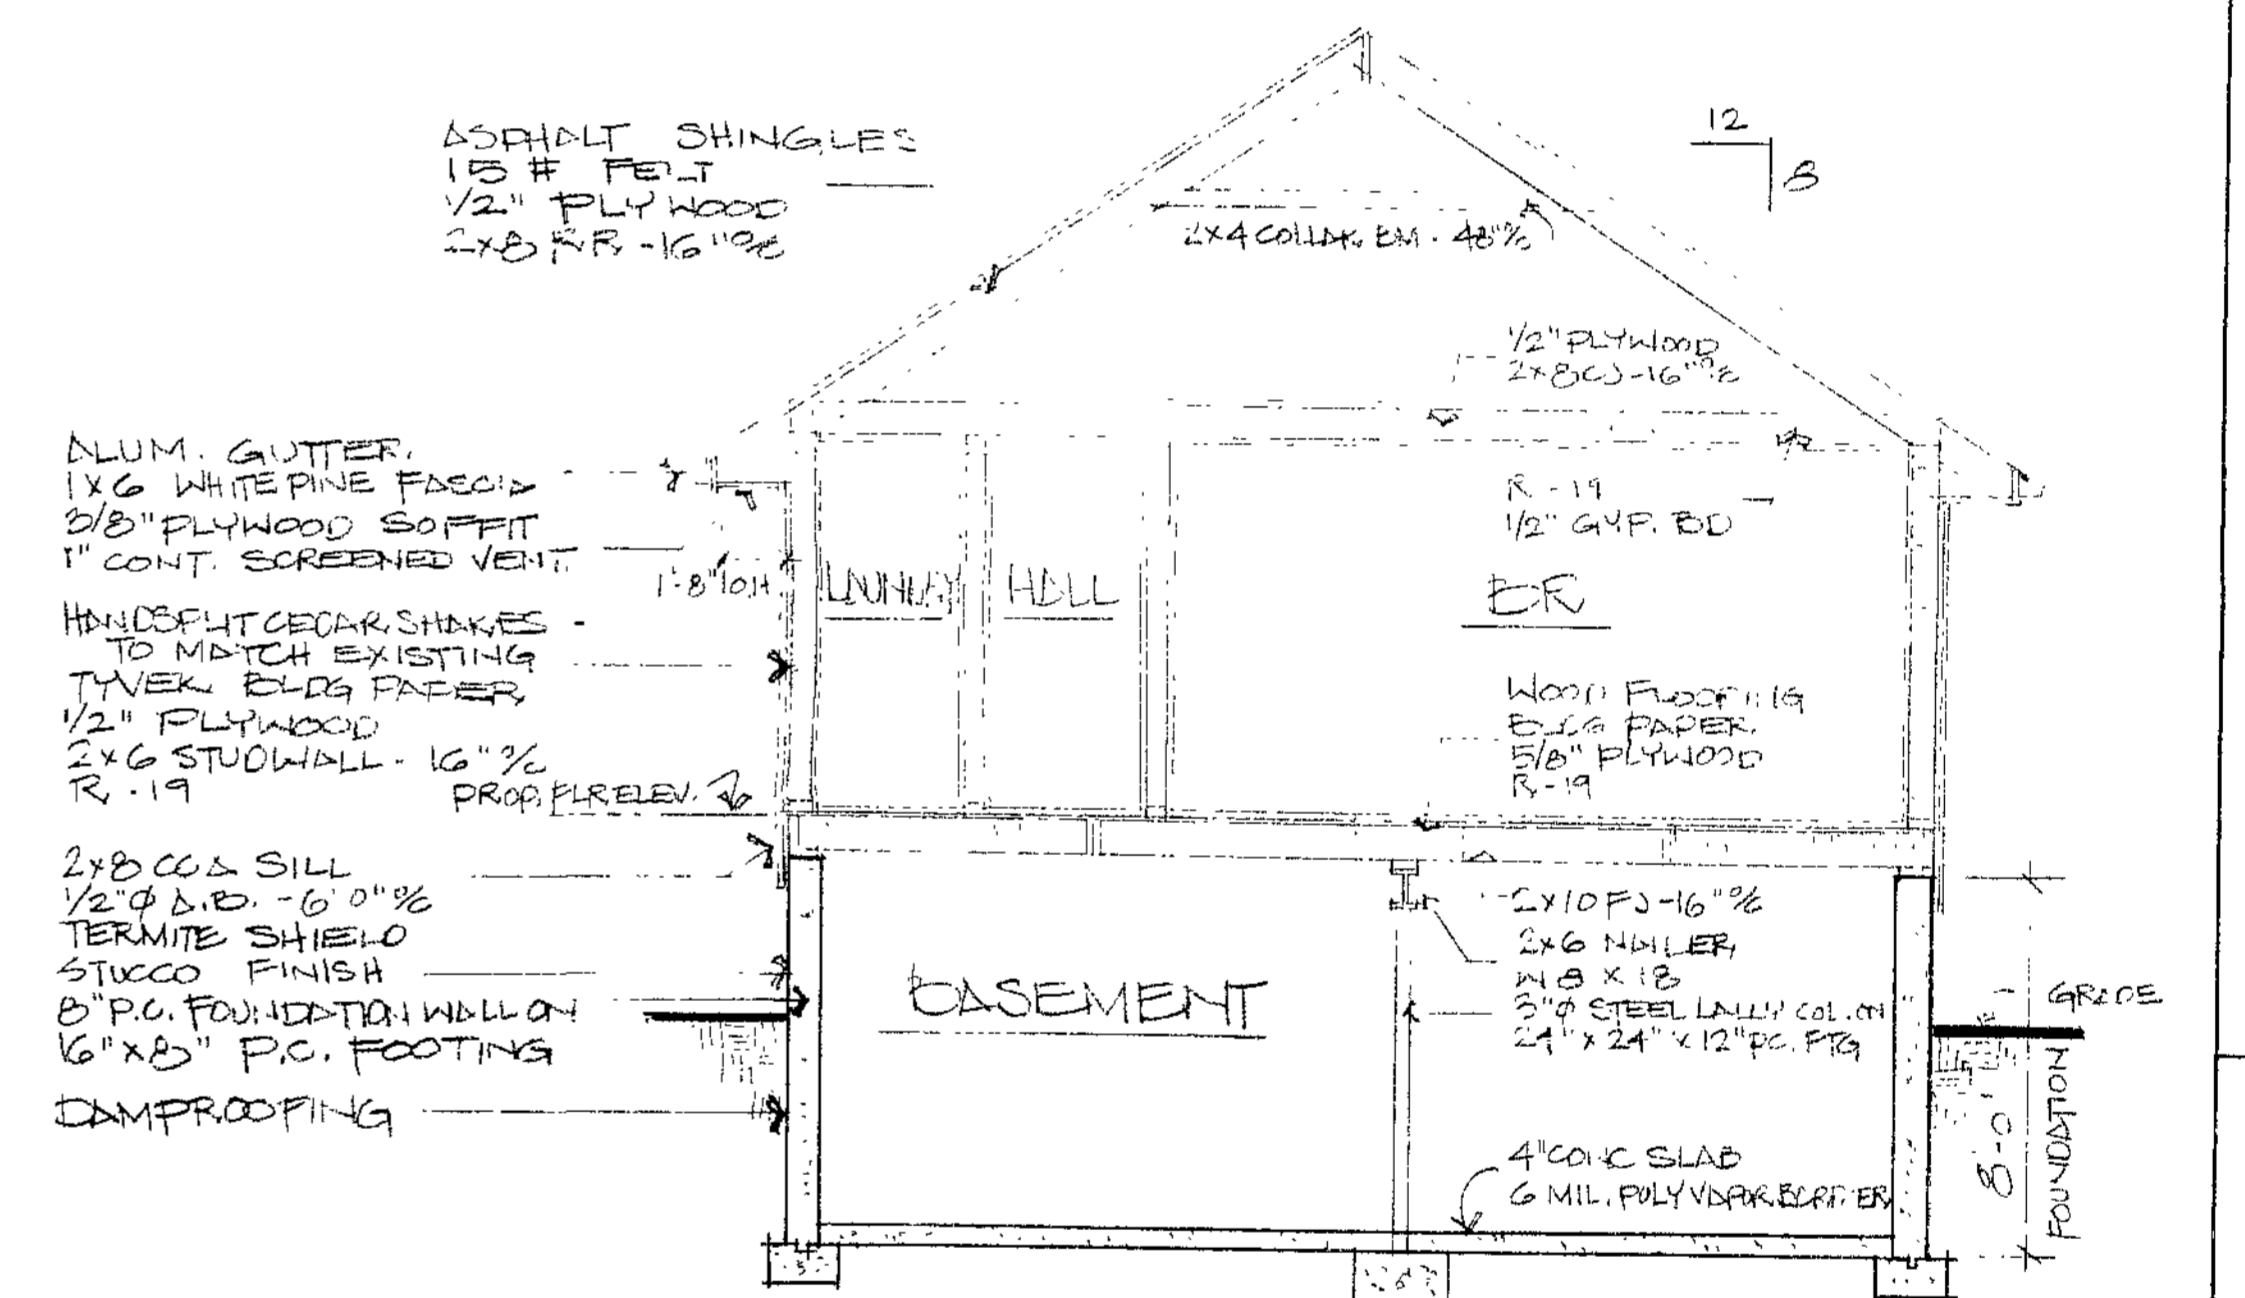 ASPHALT SHINGLES
15 # FELT
1/2" PLYWOOD
2x8 R.R. -16" O/C
12
8
2x4 COLLAR BM. - 48" O/C
1/2" PLYWOOD
2x8 CJ -16" O/C
ALUM. GUTTER.
1x6 WHITE PINE FASCIA
3/8" PLYWOOD SOFFIT
1" CONT. SCREENED VENT.
1'-8" O.H
R-19
1/2" GYP. BD
LAUNDRY
HALL
BR
HANDSPLIT CEDAR SHAKES
TO MATCH EXISTING
TYVEK BLDG PAPER
1/2" PLYWOOD
2x6 STUDWALL - 16" O/C
R-19
PROP. FLR ELEV.
WOOD FLOORING
BLDG PAPER.
5/8" PLYWOOD
R-19
2x8 CCA SILL
1/2" Ø A.B. - 6'0" O/C
TERMITE SHIELD
STUCCO FINISH
8" P.C. FOUNDATION WALL ON
16" x 8" P.C. FOOTING
DAMPROOFING
BASEMENT
2x10 FJ -16" O/C
2x6 NAILER
W 8 x 18
3" Ø STEEL LALLY COL. ON
24" x 24" x 12" P.C. FTG
GRADE
8'-0"
FOUNDATION
4" CONC SLAB
6 MIL. POLY VAPOR BARRIER